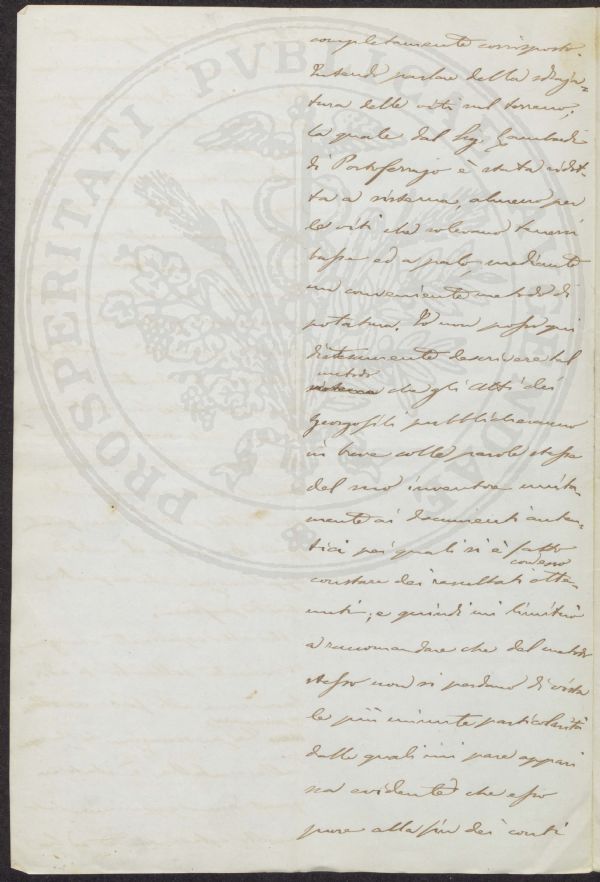 PROSPERITATI PVBLICAE AVGENDAE
completamente corrisposto.
Intendo parlare della sdraja=
tura delle viti sul terreno,
la quale dal Sig. Gambadi
di Portoferrajo è stata ridot=
ta a sistema, almeno per
le viti che solevano tenersi
basse ed a palo, mediante
un conveniente metodo di
potatura. Io non posso qui
distesamente descrivere tal
metodo
sistema che gli Atti dei
Georgofili pubblicheranno
in breve colle parole stesse
del suo inventore unita=
mente ai documenti auten=
tici pei quali si è fatto
con esso
constare dei resultati otte
nuti; e quindi mi limiterò
a raccomandare che del metodo
stesso non si perdano di vista
le più minute particolarità
dalle quali mi pare appari
sca evidente che esso
pure alla fin dei conti